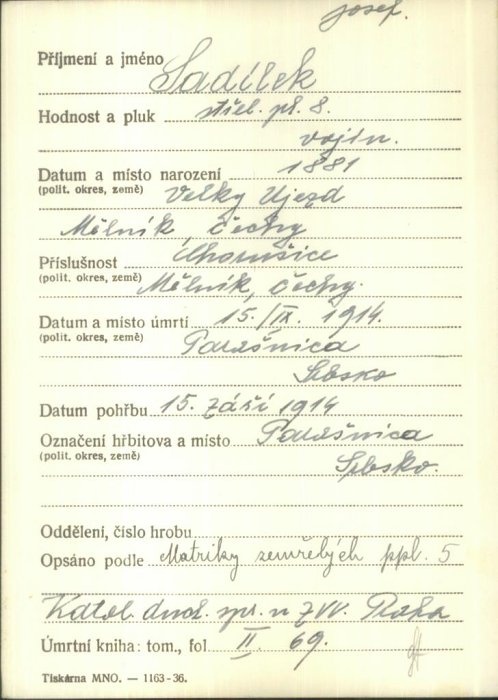 Josef.
Příjmení a jméno Sadílek
Hodnost a pluk střel. pl. 8.
vojín.
Datum a místo narození 1881
(polit. okres, země) Velký Ujezd
Mělník, Čechy
Příslušnost Chorušice
(polit. okres, země) Mělník, Čechy.
Datum a místo úmrtí 15./IX. 1914.
(polit. okres, země) Parašnica
Srbsko
Datum pohřbu 15. září 1914
Označení hřbitova a místo Parašnica
(polit. okres, země) Srbsko.
Oddělení, číslo hrobu
Opsáno podle Matriky zemřelých ppl. 5
Katol. duch. spr. u ZVV. Praha
Úmrtní kniha: tom., fol II. 69.
Tiskárna MNO. — 1163-36.